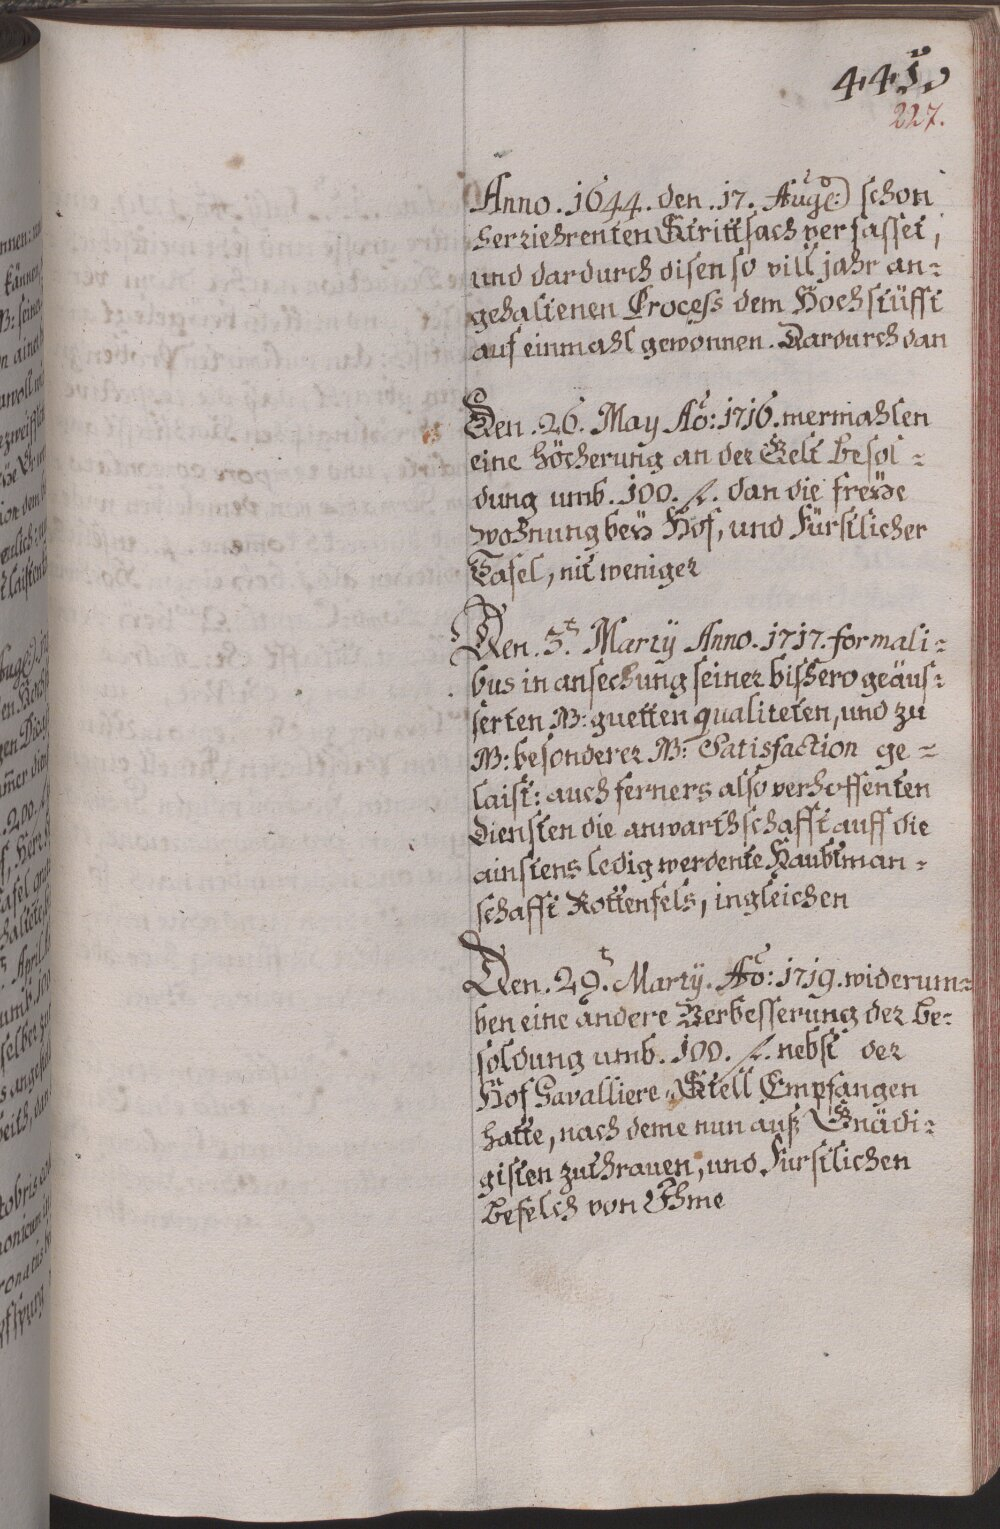 445
227.
Anno . 1644 . den . 17. Aug: schon
herziehrenten Strittsach verfasset,
und dardurch disen so vill jahr an=
gehaltenen Process dem Hochstüfft
auf einmahl gewonnen . Dardurch dan
Den . 26. May Aõ: 1716. mermahlen
eine höcherung an der Gelt besol =
dung umb . 100. f. dan die freÿe
wohnung beÿ Hof, und Fürstlicher
Tafel, nit weniger
Den . 3t. Martÿ Anno . 1717. formali =
bus in ansechung seiner bishero geäus=
serten M: guetten qualiteten, und zu
M: besonderer M: Satisfaction ge =
laist: auch ferners also verhoffenten
diensten die anwarthschafft auff die
ainstens ledig werdente Haubtman =
schafft Rottenfels, ingleichen
Den . 29t. Martÿ . Aõ: 1719. widerum=
ben eine andere Verbesserung der be=
soldung umb . 100. f. nebst der
Hof Cavalliere Stell Empfangen
hatte, nach deme nun auß Gnädi=
gisten zuthrauen, und Fürstlichen
befelch von Ihme